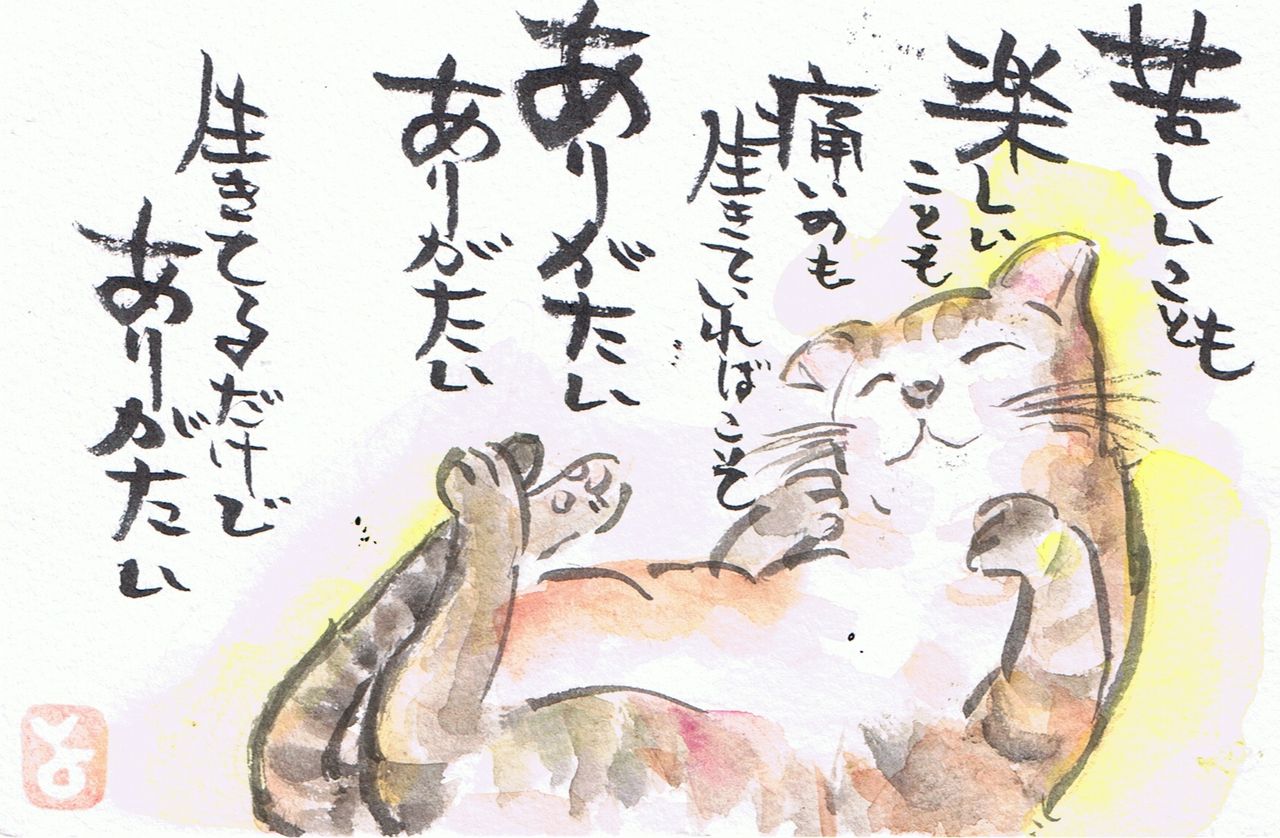 苦しいことも
楽しい
ことも
痛いのも
生きていればこそ
ありがたい
ありがたい
生きてるだけで
ありがたい